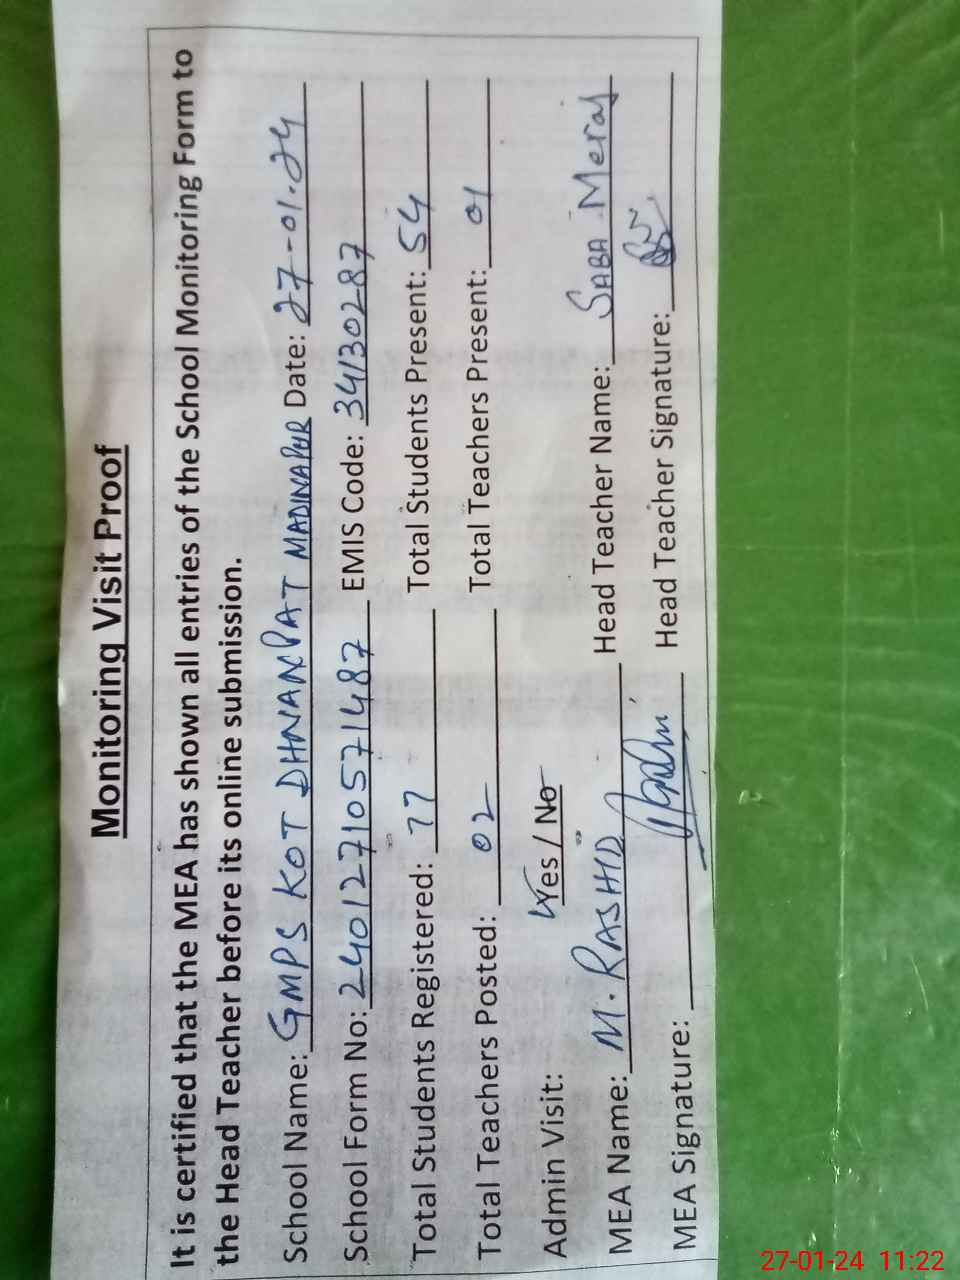 Monitoring Visit Proof
It is certified that the MEA has shown all entries of the School Monitoring Form to
the Head Teacher before its online submission.
School Name: GMPS KOT DHNANPAT MADINAPUR Date: 27-01-24
School Form No: 24012710571487 EMIS Code: 34130287
Total Students Registered: 77 Total Students Present: 54
Total Teachers Posted: 02 Total Teachers Present: 01
Admin Visit: Yes / No
MEA Name: M. RASHID Head Teacher Name: SABA Meraj
MEA Signature: Head Teacher Signature:
27-01-24 11:22